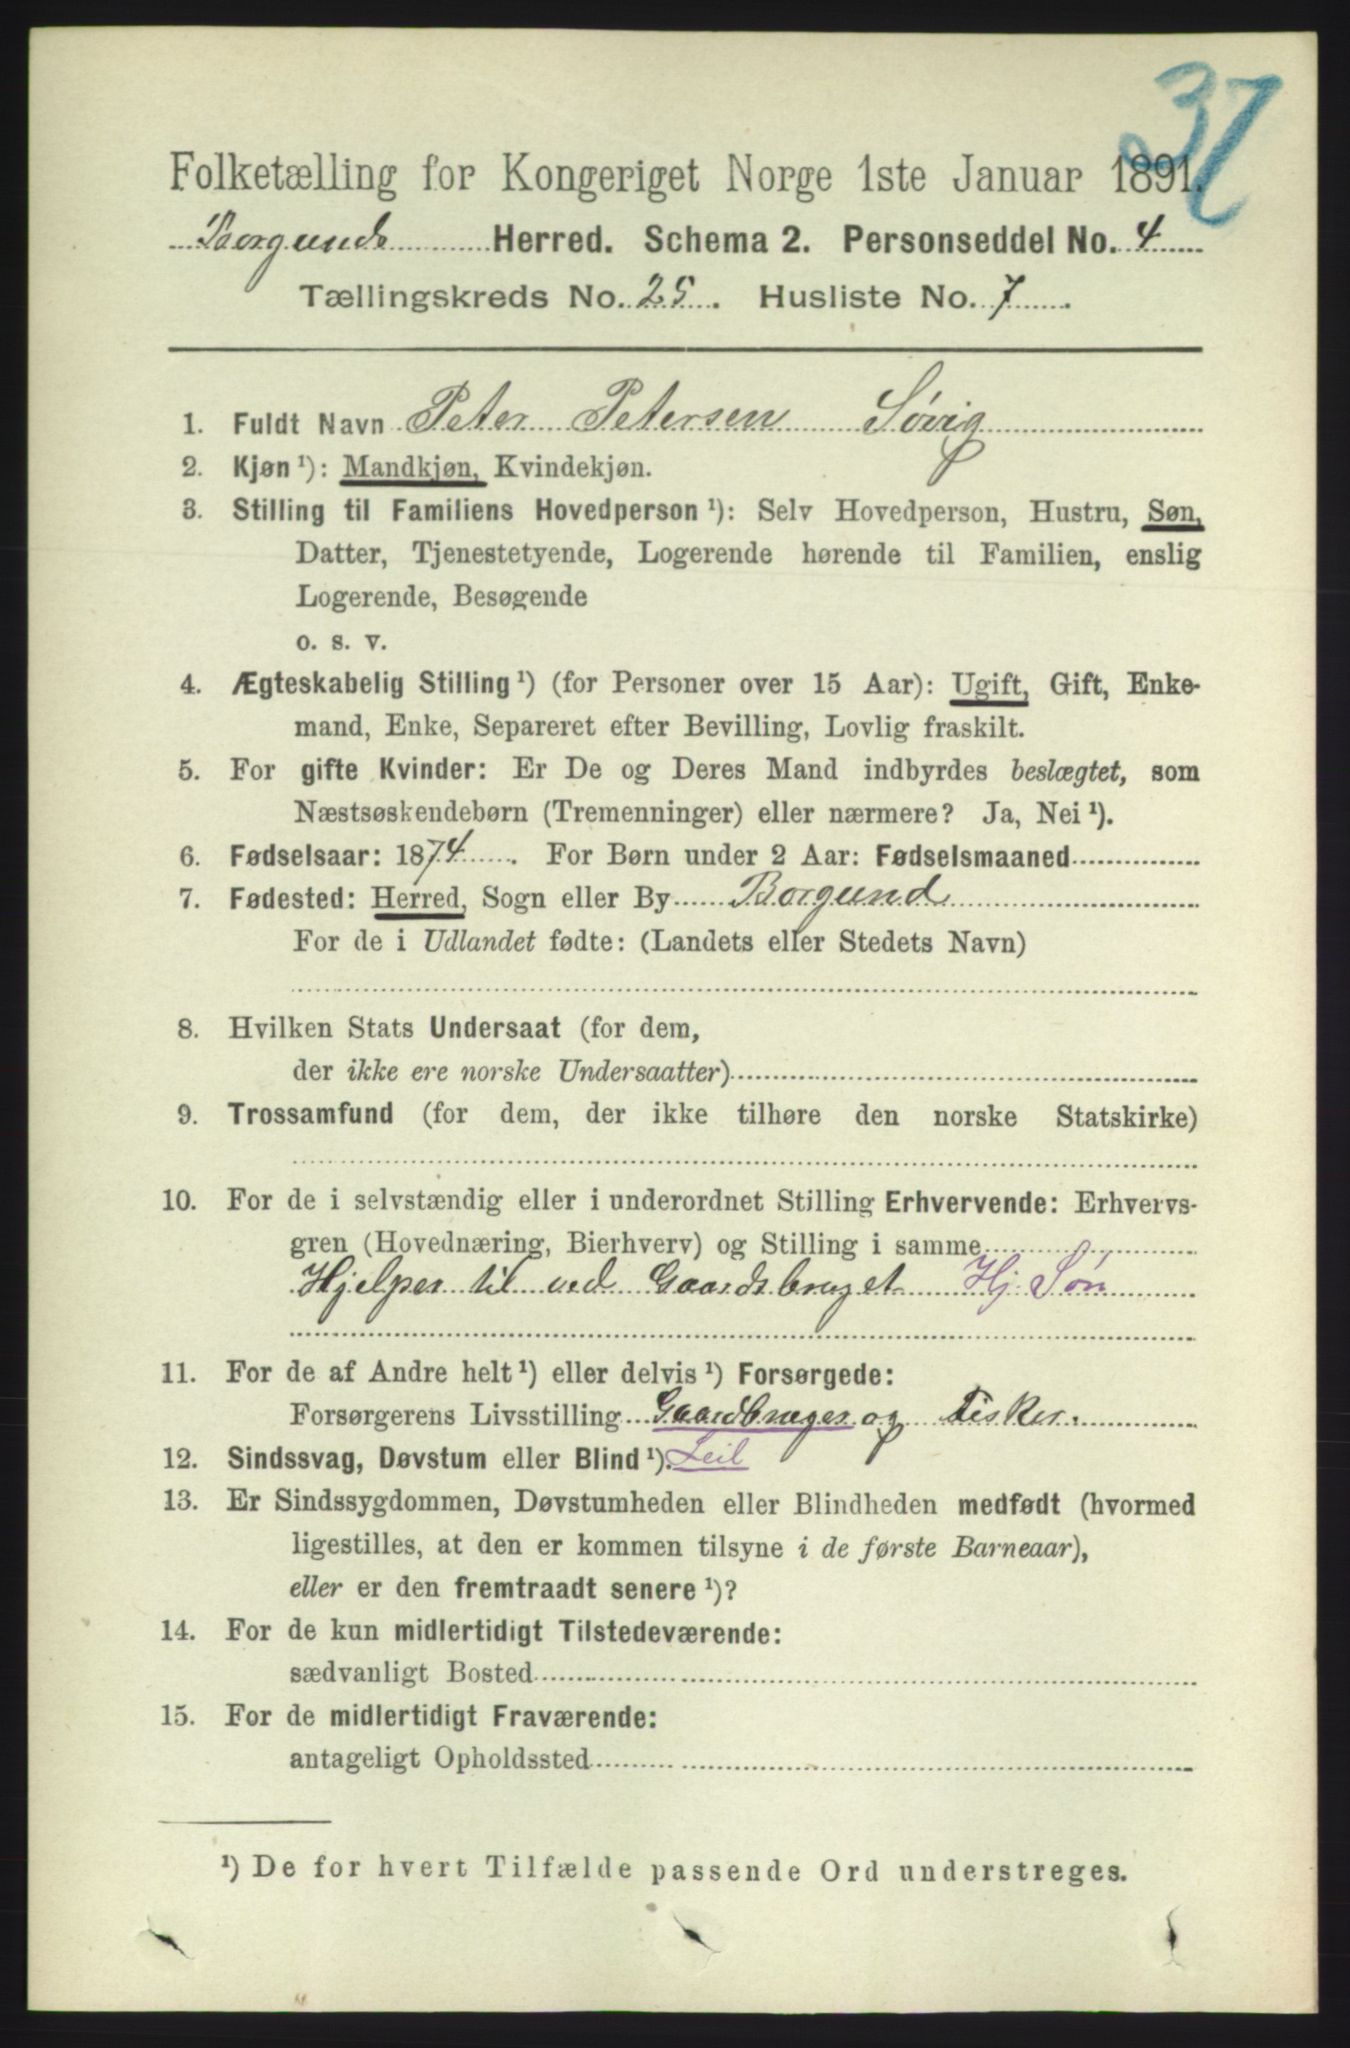 37
Folketælling for Kongeriget Norge 1ste Januar 1891.
Borgund Herred. Schema 2. Personseddel No. 4
Tællingskreds No. 25. Husliste No. 7.
1. Fuldt Navn Peter Petersen Søvig
2. Kjøn ¹): Mandkjøn, Kvindekjøn.
3. Stilling til Familiens Hovedperson ¹): Selv Hovedperson, Hustru, Søn,
Datter, Tjenestetyende, Logerende hørende til Familien, enslig
Logerende, Besøgende
o. s. v.
4. Ægteskabelig Stilling ¹) (for Personer over 15 Aar): Ugift, Gift, Enke-
mand, Enke, Separeret efter Bevilling, Lovlig fraskilt.
5. For gifte Kvinder: Er De og Deres Mand indbyrdes beslægtet, som
Næstsøskendebørn (Tremenninger) eller nærmere? Ja, Nei ¹).
6. Fødselsaar: 1874. For Børn under 2 Aar: Fødselsmaaned
7. Fødested: Herred, Sogn eller By Borgund
For de i Udlandet fødte: (Landets eller Stedets Navn)
8. Hvilken Stats Undersaat (for dem,
der ikke ere norske Undersaatter)
9. Trossamfund (for dem, der ikke tilhøre den norske Statskirke)
10. For de i selvstændig eller i underordnet Stilling Erhvervende: Erhvervs-
gren (Hovednæring, Bierhverv) og Stilling i samme
Hjelper til ved Gaardsbruget Hj. Søn
11. For de af Andre helt ¹) eller delvis ¹) Forsørgede:
Forsørgerens Livsstilling Gaardbruger og Fisker.
12. Sindssvag, Døvstum eller Blind ¹). Leil
13. Er Sindssygdommen, Døvstumheden eller Blindheden medfødt (hvormed
ligestilles, at den er kommen tilsyne i de første Barneaar),
eller er den fremtraadt senere ¹)?
14. For de kun midlertidigt Tilstedeværende:
sædvanligt Bosted
15. For de midlertidigt Fraværende:
antageligt Opholdssted
¹) De for hvert Tilfælde passende Ord understreges.